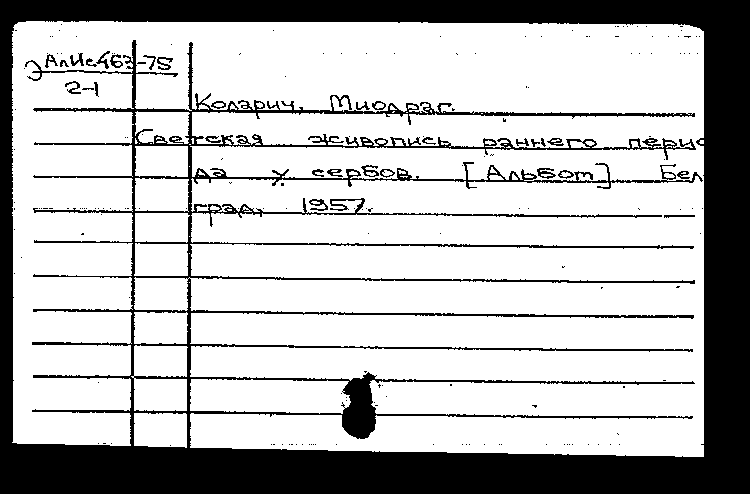 ЭАлИс463-75
2-1
Коларич, Миодраг.
Светская живопись раннего перио
да у сербов. [Альбом]. Бел
град, 1957.